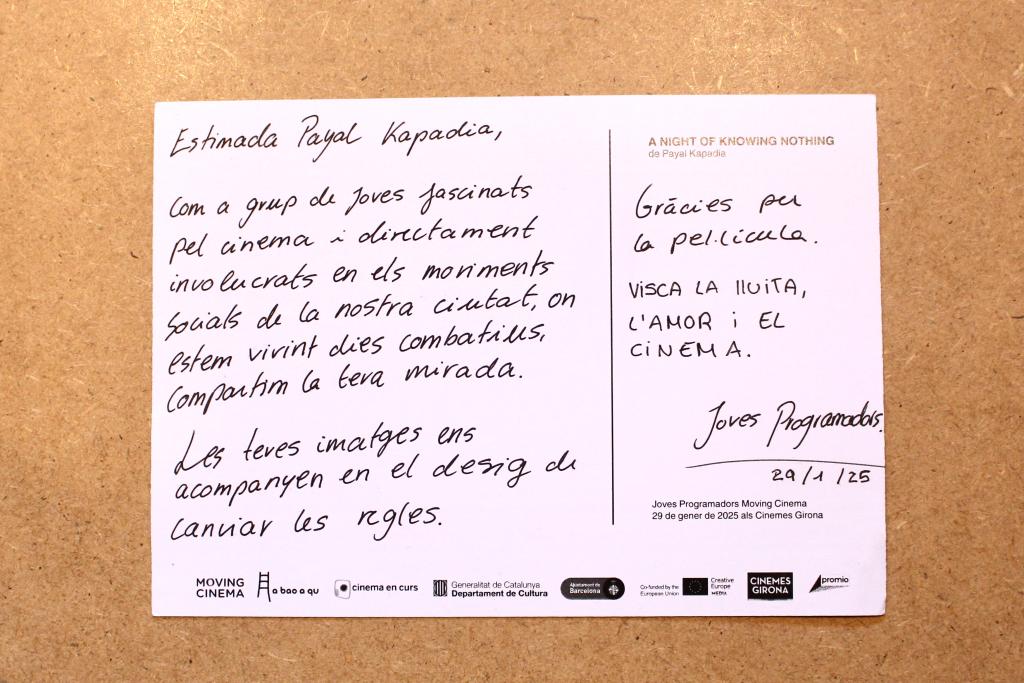 Estimada Payal Kapadia,
Com a grup de joves fascinats
pel cinema i directament
involucrats en els moviments
socials de la nostra ciutat, on
estem vivint dies combatius,
compartim la teva mirada.
Les teves imatges ens
acompanyen en el desig de
canviar les regles.
A NIGHT OF KNOWING NOTHING
de Payal Kapadia
Gràcies per
la pel·lícula.
VISCA LA lluiTA,
L'AMOR i EL
CiNEMA.
Joves Programadors.
29/1/25
Joves Programadors Moving Cinema
29 de gener de 2025 als Cinemes Girona
MOVING
CINEMA
A bao a qu
cinema en curs
Generalitat de Catalunya
Departament de Cultura
Ajuntament de
Barcelona
Co-funded by the
European Union
Creative
Europe
MEDIA
CINEMES
GIRONA
promio